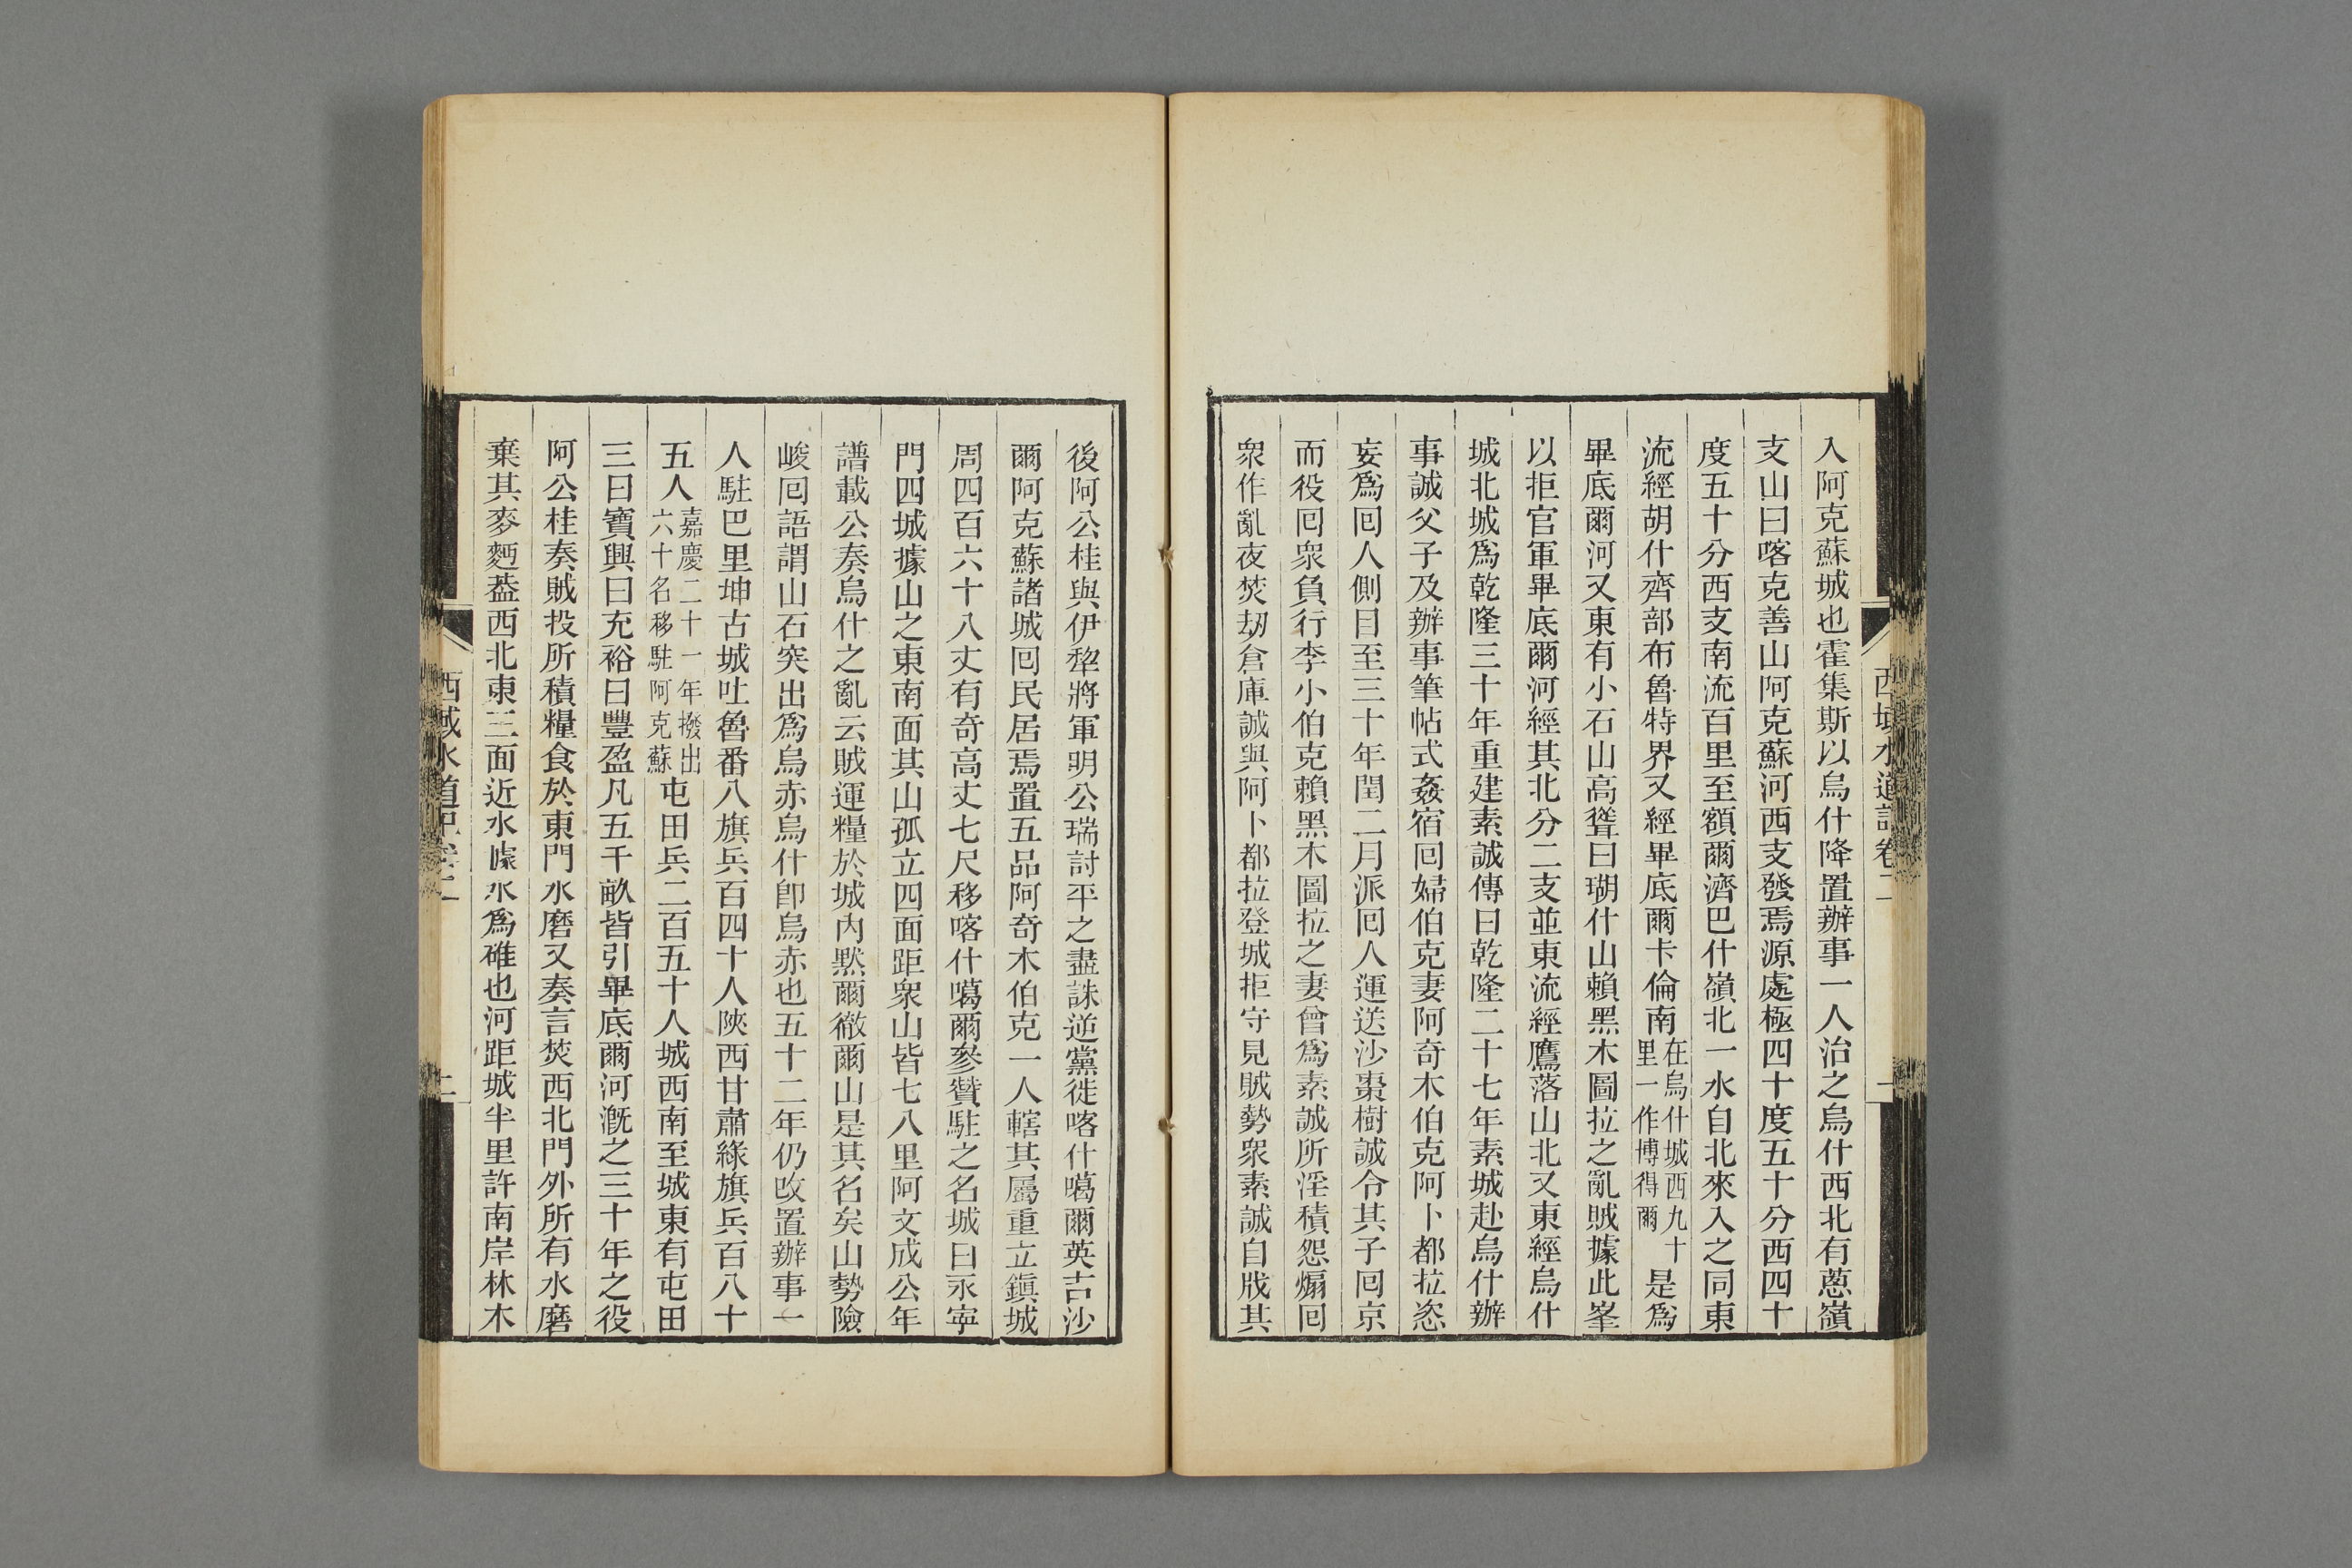 西域水道記卷二
一
入阿克蘇城也霍集斯以烏什降置辦事一人治之烏什西北有蔥嶺
支山曰喀克善山阿克蘇河西支發焉源處極四十度五十分西四十
度五十分西支南流百里至額爾濟巴什嶺北一水自北來入之同東
流經胡什齊部布魯特界又經畢底爾卡倫南在烏什城西九十里一作博得爾是爲
畢底爾河又東有小石山高聳曰瑚什山賴黑木圖拉之亂賊據此峯
以拒官軍畢底爾河經其北分二支並東流經鷹落山北又東經烏什
城北城爲乾隆三十年重建素誠傳曰乾隆二十七年素城赴烏什辦
事誠父子及辦事筆帖式姦宿回婦伯克妻阿奇木伯克阿卜都拉恣
妄爲回人側目至三十年閏二月派回人運送沙棗樹誠令其子回京
而役回衆負行李小伯克賴黑木圖拉之妻曾爲素誠所淫積怨煽回
衆作亂夜焚刼倉庫誠與阿卜都拉登城拒守見賊勢衆素誠自戕其
後阿公桂與伊犂將軍明公瑞討平之盡誅逆黨徙喀什噶爾英吉沙
爾阿克蘇諸城回民居焉置五品阿奇木伯克一人轄其屬重立鎭城
周四百六十八丈有奇高丈七尺移喀什噶爾參贊駐之名城曰永寧
門四城據山之東南面其山孤立四面距衆山皆七八里阿文成公年
譜載公奏烏什之亂云賊運糧於城內默爾徹爾山是其名矣山勢險
峻回語謂山石突出爲烏赤烏什卽烏赤也五十二年仍改置辦事一
人駐巴里坤古城吐魯番八旗兵百四十人陜西甘肅綠旗兵百八十
五人嘉慶二十一年撥出六十名移駐阿克蘇屯田兵二百五十人城西南至城東有屯田
三曰寶興曰充裕曰豐盈凡五千畝皆引畢底爾河漑之三十年之役
阿公桂奏賊投所積糧食於東門水磨又奏言焚西北門外所有水磨
棄其麥麪葢西北東三面近水㨿水爲碓也河距城半里許南岸林木
西域水道記卷二
二